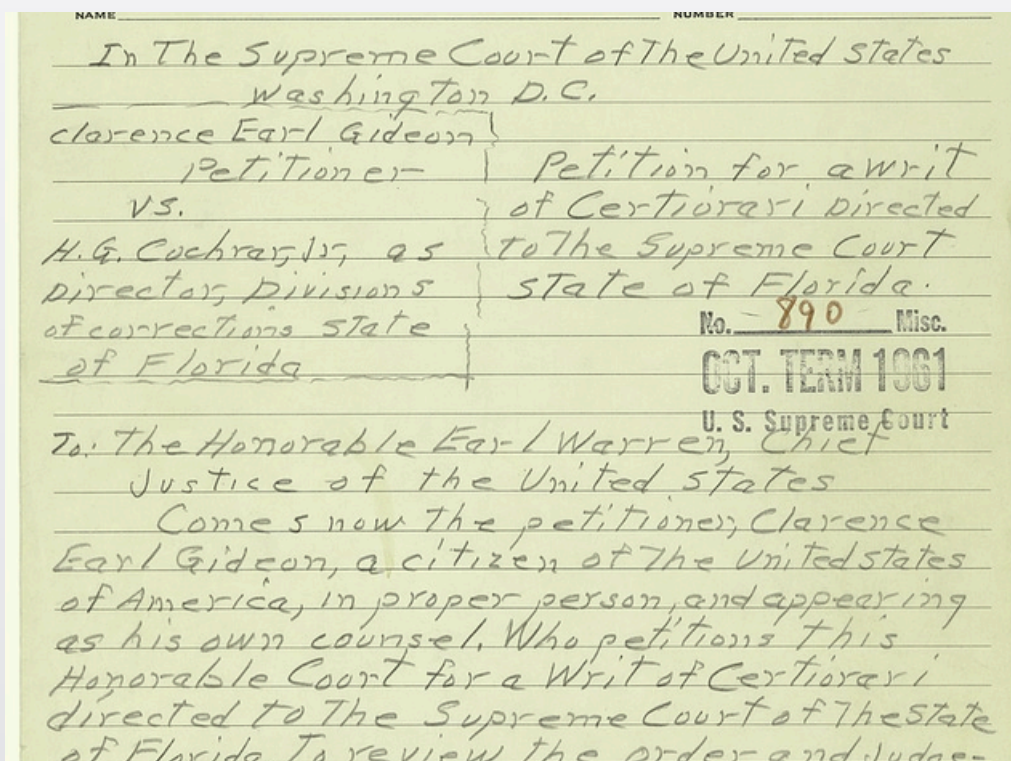 NAME NUMBER
In The Supreme Court of The United States
Washington D.C.
Clarence Earl Gideon
Petitioner
vs.
H.G. Cochran, Jr, as
Director, Divisions
of corrections State
of Florida
Petition for a writ
of Certiorari Directed
to The Supreme Court
State of Florida.
No. 890 Misc.
OCT. TERM 1961
U. S. Supreme Court
To: The Honorable Earl Warren, Chief
Justice of the United States
Comes now the petitioner, Clarence
Earl Gideon, a citizen of The United states
of America, in proper person, and appearing
as his own counsel. Who petitions this
Honorable Court for a Writ of Certiorari
directed to The Supreme Court of The State
of Florida, To review the order and Judge-